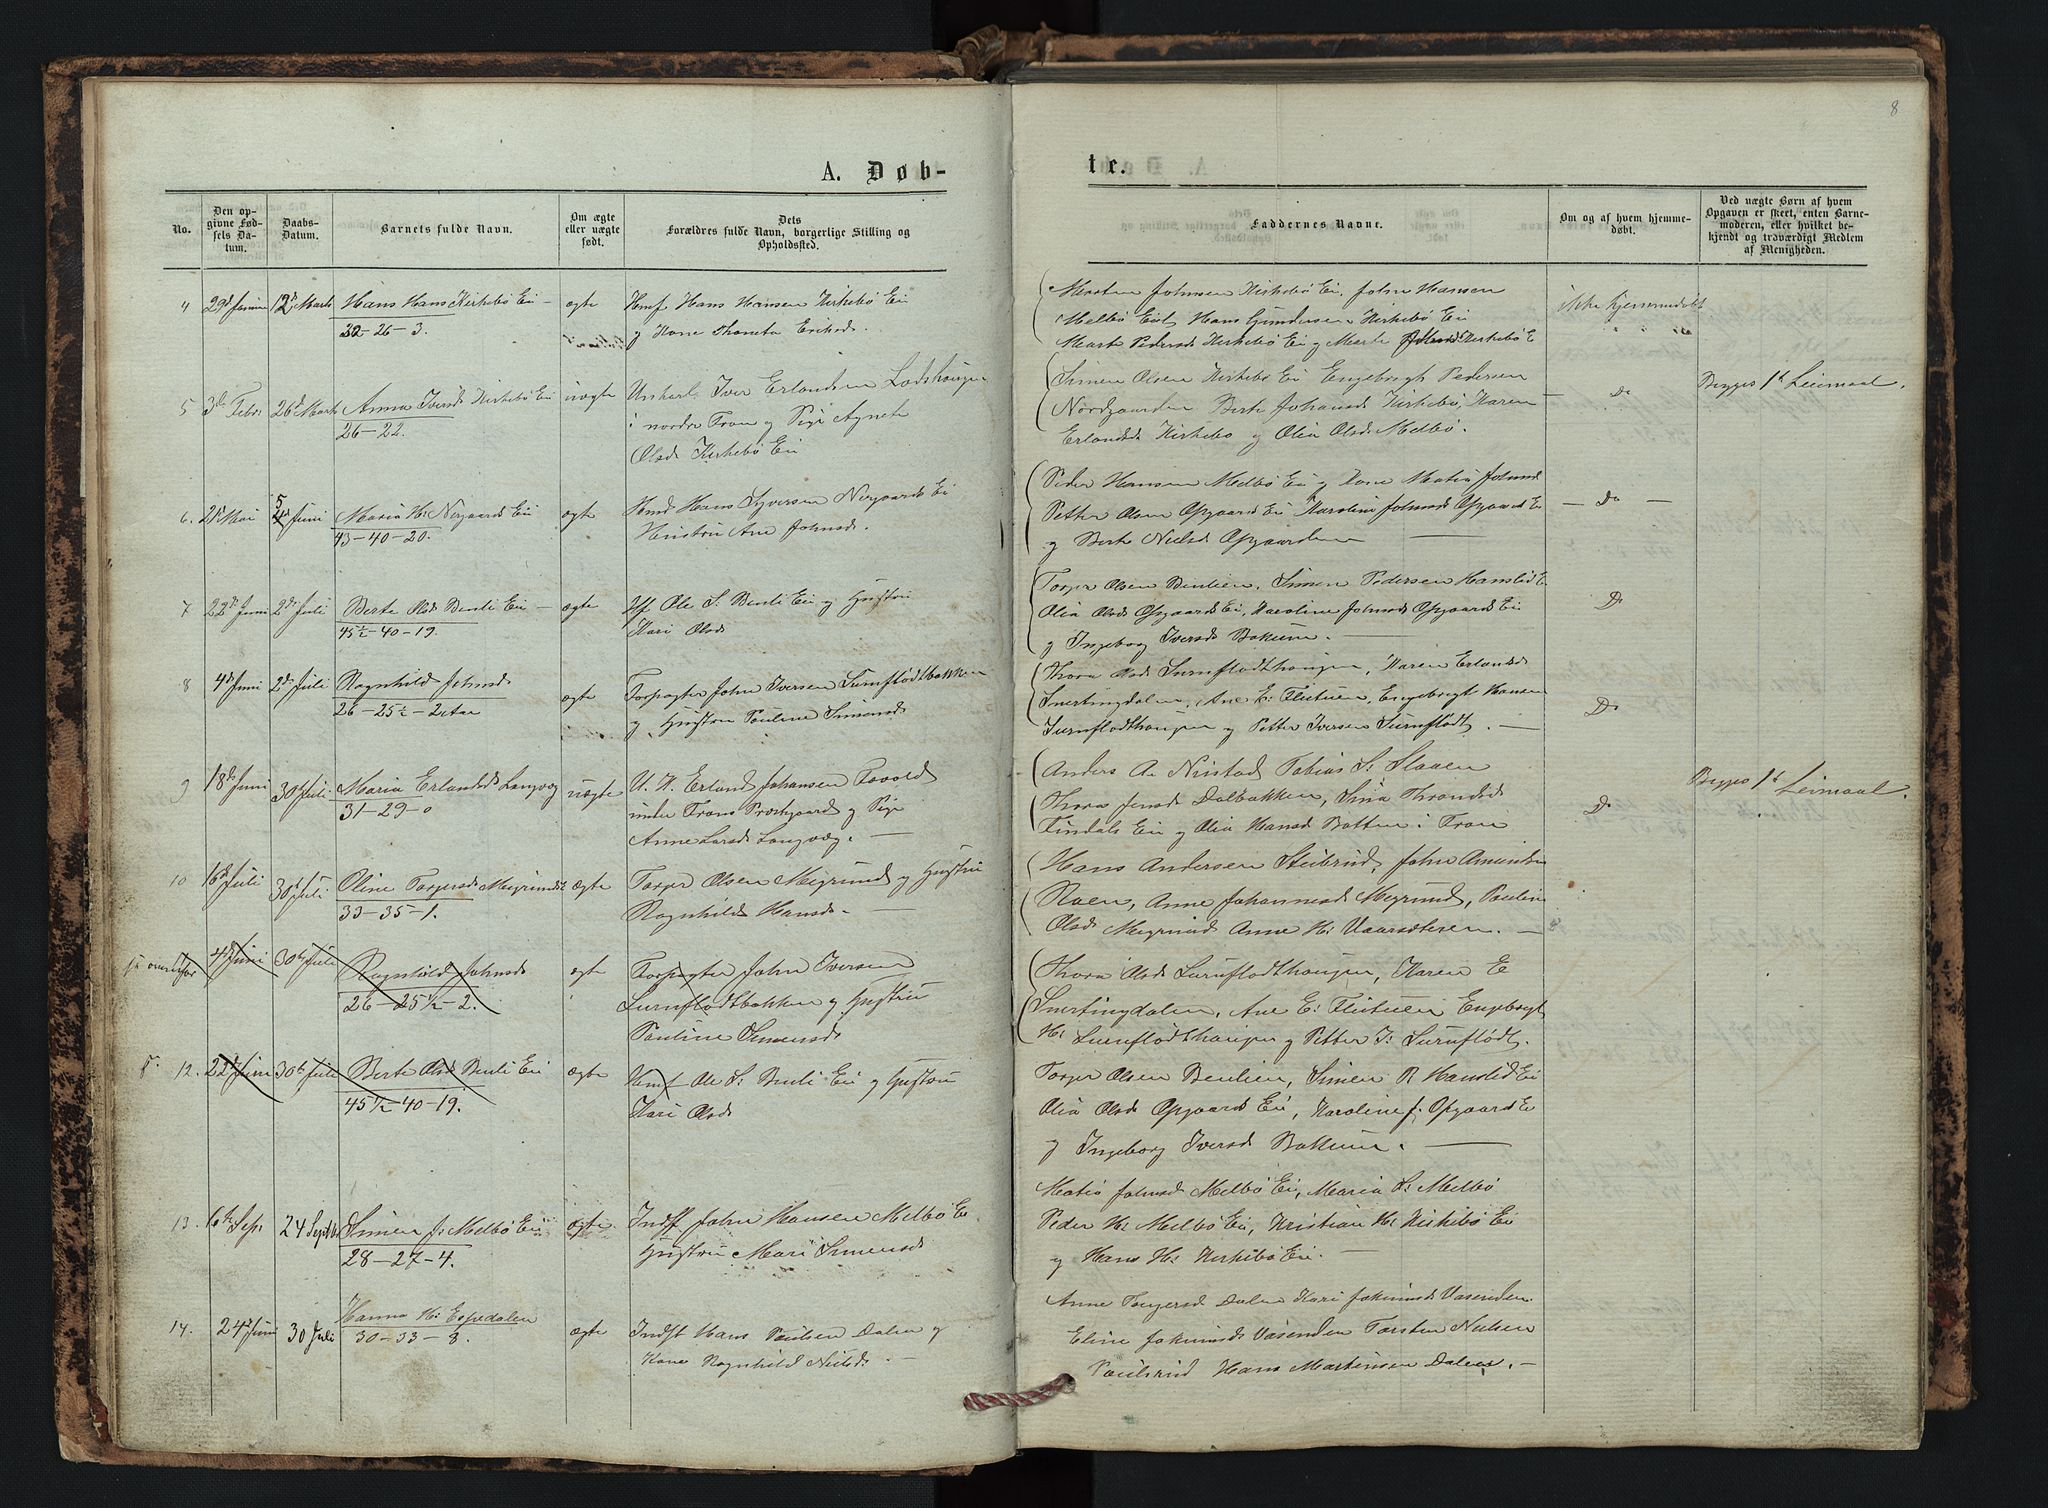 8
A. Døb-
te.
No.
Den opgivne Fødsels Datum.
Daabs-Datum.
Barnets fulde Navn.
Om ægte eller uægte født.
Dets Forældres fulde Navn, borgerlige Stilling og Opholdssted.
Faddernes Navne.
Om og af hvem hjemmedøbt.
Ved uægte Børn af hvem Opgaven er skeet, enten Barnemoderen, eller hvilket bekjendt og troværdigt Medlem af Menigheden.
4 29d 12te Marts Hans Hans Kirkebø Ei ægte Hans Hansen Kirkebø Ei
32-26-3. og Kone Eriksd.
Johnsen Kirkebø Ei, John Hansen
Melbø Hans Gundersen Kirkebø Ei
Marte Pedersd Kirkebø Ei og Marte Kirkebø E
ikke hjemmedøbt
5 3die Febr 26d Marts Anna Iversd Kirkebø Ei uægte Ungkarl Iver Erlandsen Lodshaugen
26-22. i nordre Fron og Pige Agnete
Olsd Kirkebø Ei
Simen Olsen Kirkebø Ei Engebregt Pedersen
Nordgaarden Berte Johansd Kirkebø, Karen
Erlandsd Kirkebø og Olia Olsd Melbø.
Do
Begges 1st Leiermaal.
6. 21d Mai 5 Juni Maria H: Nergaards Ei ægte Hans Syversen Nergaards Ei
43-40-20. Hustru Ane Johnsd.
Peder Hansen Melbø Ei og Kone Matia Johnsd
Petter Olsen Opgaards Ei Karoline Johnsd Opgaard E
og Berte Nielsd Opgaarden
Do
7 22de Juni 2den Juli Berte Olsd Benli Ei ægte Hf. Ole S: Benli Ei og Hustru
45½-40-19. Kari Olsd
Torger Olsen Benlien, Simen Pedersen Hanslid Ei
Olia Olsd Opgaards Ei, Karoline Johnsd Opgaards Ei
og Ingeborg Iversd Bakken.
Do
8 4de Juni 2den Juli Ragnhild Johnsd ægte Forpagter John Iversen Surnflødtbakken
26-25½-2 og Hustru Pauline Simensd
Thora Olsd Surnflodthaugen, Karen Erlandsd
Snertingdalen, Ane E: Flituen, Engebregt Hansen
Surnflodthaugen og Petter Iversen Surnflodt.
Do
9 18de Juni 30te Juli Maria Erlandsd Langvog uægte U. K. Erland Johansen
31-29-0 Frons Prestgaard og Pige
Anne Larsd Langvæg.
Anders A. Nustad Tobias S: Slaaen
Thora Jensd Dalbakken, Sina Throndsd
Tindals Ei og Olia Hansd Botten i Fron
Do
Begges 1st Leiermaal.
10 16d Juli 30te Juli Oline Torgersd Megrund ægte Torger Olsen Megrund og Hustru
33-35-1. Ragnhild Hansd.
Hans Andersen Stubrud, John Amundsen
Roen, Anne Johannesd Megrund, Pauline
Olsd Megrund Anne H: Vaarsæteren.
4de Juni 30te Juli Ragnhild Johnsd ægte Forpagter John Iversen
26-25½-2. Surnflødtbakken og Hustru
Pauline Simensd
Thora Olsd Surnflodthaugen, Karen E
Snertingdalen, Ane E: Flituen Engebregt
H: Surnflødthaugen og Petter I: Surnflødt.
12. 22d Juni 30te Juli Berte Olsd Benli Ei ægte Ole S: Benli Ei og Hustru
45½-40-19. Kari Olsd
Torger Olsen Benlien, Simen P. Hanslid Ei
Olia Olsd Opgaards Ei, Karoline J. Opgaard E
og Ingeborg Iversd Bakken.
13. 6te Sep: 24 Septbr Simen J: Melbø Ei ægte Indf John Hansen Melbø E
28-27-4. Hustru Mari Simensd
Matia Johnsd Melbø Ei, Maria S: Melbø
Peder H: Melbø Ei, Kristian H: Kirkebø Ei
og Hans H: Kirkebø Ei.
14. 24d Juni 30 Juli Hanna H: Espedalen ægte Indst Hans Paulsen Dalen og
30-33-8. Kone Ragnhild Nielsd.
Anne Torgersd Dalen Kari Jakimsd Vasenden
Eline Jakimsd Vasenden Torsten Nielsen
Paulsrud Hans Martinsen Dalen.